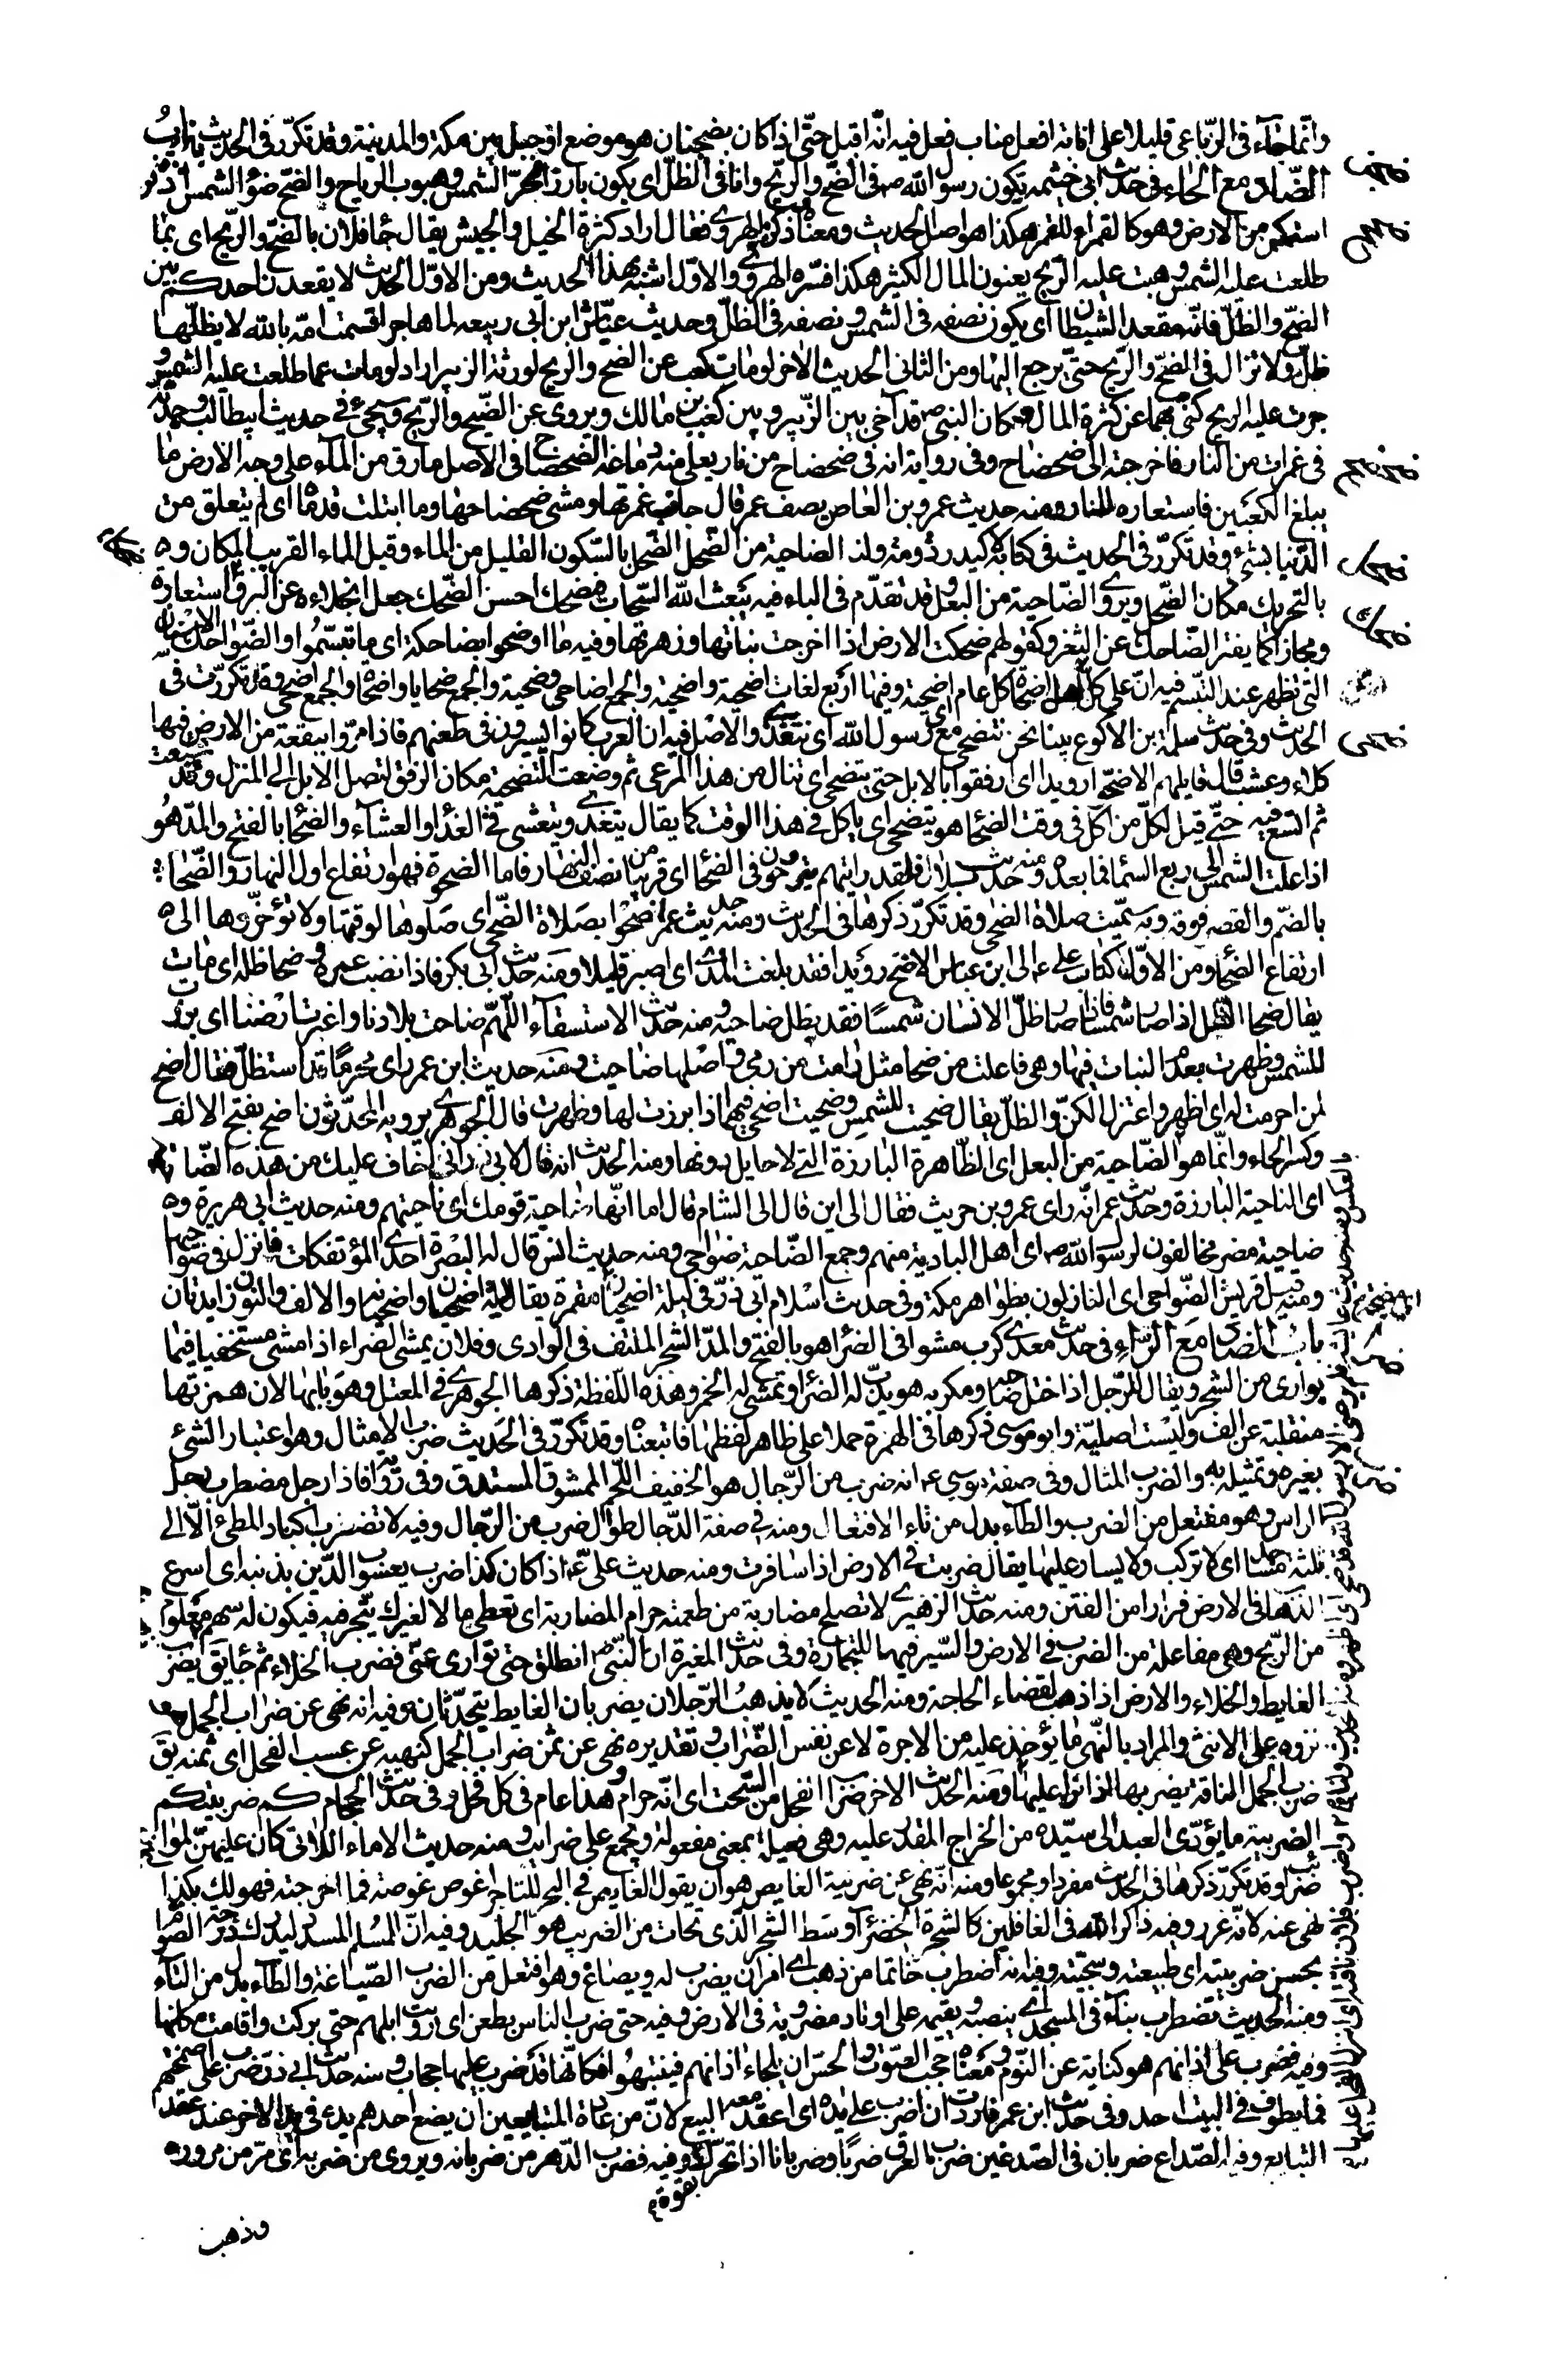 وانما جاء فى الرباعى قليلا على انابة افعل مناب فعل فيه انه اقبل حتى اذا كان بضجنان هو موضع او جبل بين مكة والمدينة وقد تكرر فى الحديث باب
الضاد مع الحاء فى حديث ابى خثيمه يكون رسول الله ص فى الضح والريح وانا فى الظل اى يكون بارزا لحر الشمس وهبوب الرياح والضح ضوء الشمس اذا
استمكن من الارض وهو كالقمراء للقمر هكذا هو اصل الحديث ومعناه وذكره الهروى فقال اراد كثرة الخيل والجيش يقال جاء فلان بالضح والريح اى بما
طلعت عليه الشمس وهبت عليه الريح يعنون المال الكثير هكذا فسره الهروى والاول اشبه بهذا الحديث ومن الاول الحديث لا يقعدن احدكم بين
الضح والظل فانه مقعد الشيطان اى يكون نصفه فى الشمس ونصفه فى الظل وحديث عياش ابن ابى ربيعه لما هاجر اقسمت امه بالله لا يظلها
ظل ولا تزال فى الضح والريح حتى يرجع اليها ومن الثانى الحديث الاخر لو مات كعب عن الضح والريح لورثه الزبير اراد لو مات عما طلعت عليه الشمس و
جرت عليه الريح كنى بهما عن كثرة المال وكان النبى ص قد آخى بين الزبير وبين كعب بن مالك ويروى عن الضيح والريح وسيجئ فى حديث ابيطالب وجدته
فى غمرات من النار فاخرجته الى ضحضاح وفى رواية انه فى ضحضاح من نار يغلى منه دماغه الضحضاح فى الاصل ما رق من الماء على وجه الارض ما
يبلغ الكعبين فاستعاره للنار ومنه حديث عمرو بن العاص يصف عمر قال جانب غمرتها ومشى ضحضاحها وما ابتلت قدماه اى لم يتعلق من
الدنيا بشئ وقد تكرر فى الحديث فى كتابه لاكيدر دومة ولنا الضاحية من الضحل الضحل بالسكون القليل من الماء وقيل الماء القريب المكان وه
بالتحريك مكان الضحل ويروى الضاحية من البعل وقد تقدم فى الباء فيه يبعث الله السحاب فيضحك احسن الضحك جعل انجلاءه عن البرق استعارة
ومجازا كما يفتر الضاحك عن الثغر وكقولهم ضحكت الارض اذا اخرجت نباتها وزهرتها وفيه ما اوضحوا بضاحكة اى ما تبسموا والضواحك الاسنان
التى تظهر عند التبسم فيه ان على كل اهل بيت اضحاة كل عام اى اضحية وفيها اربع لغات اضحية واضحية والجمع اضاحى وضحية والجمع ضحايا واضحاة والجمع اضحى وقد تكررت فى
الحديث وفى حديث سلمة بن الاكوع بينا نحن نتضحى مع رسول الله اى نتغدى والاصل فيه ان العرب كانوا يسيرون فى ظعنهم فاذا مروا ببقعة من الارض فيها
كلاء وعشب قال قايلهم الا ضحوا رويدا اى ارفقوا بالابل حتى تتضحى اى تنال من هذا المرعى ثم وضعت التضحية مكان الرفق لتصل الابل الى المنزل وقد شبعت
ثم اتسع فيه حتى قيل لكل من اكل فى وقت الضحاء هو يتضحى اى ياكل فى هذا الوقت كما يقال يتغدى ويتعشى فى الغداء والعشاء والضحاء بالفتح والمد هو
اذا علت الشمس الى ربع السماء فما بعده ومنه حديث بلال فلقد رايتهم يتروحون فى الضحاء اى قريبا من نصف النهار فاما الضحوة فهو ارتفاع اول النهار والضحا
بالضم والقصر فوقه وبه سميت صلاة الضحى وقد تكرر ذكرها فى الحديث ومنه حديث عمر اضحوا بصلاة الضحى اى صلوها لوقتها ولا تؤخروها الى
ارتفاع الضحاء ومن الاول كتاب على ع الى ابن عباس الا ضح رويدا فقد بلغت المدى اى اصبر قليلا ومنه حديث ابى بكر فاذا نضب عمره وضحا ظله اى مات
يقال ضحا الظل اذا صار شمسا فاذا صار ظل الانسان شمسا فقد بطل صاحبه ومنه حديث الاستسقاء اللهم ضاحت بلادنا واغبرت ارضنا اى برزت
للشمس وظهرت بعدم النبات فيها وهى فاعلت من ضحا مثل رامت من رمى واصلها ضاحيت ومنه حديث ابن عمر راى محرما قد استظل فقال اضح
لمن احرمت له اى اظهر واعتزل الكن والظل يقال ضحيت للشمس وضحيت اضحى فيهما اذا برزت لها وظهرت قال الجوهرى يرويه المحدثون اضح بفتح الالف
وكسر الحاء وانما هو الضاحية من البعل اى الظاهرة البارزة التى لا حايل دونها ومنه الحديث انه قال لابى ذر انى اخاف عليك من هذه الضاحية
اى الناحية البارزة وحديث عمر انه راى عمرو بن حريث فقال الى اين قال الى الشام قال اما انها ضاحية قومك اى ناحيتهم ومنه حديث ابى هريرة وه
ضاحية مضر مخالفون لرسول الله ص اى اهل البادية منهم وجمع الضاحية ضواحى ومنه حديث انس قال له البصرة احدى المؤتفكات فانزل فى ضواحيها
ومنه قيل قريش الضواحى اى النازلون بظواهر مكة وفى حديث اسلام ابى ذر فى ليلة اضحيان مقمرة يقال ليلة اضحيان واضحيانه والالف والنون زايدتان
باب الضاد مع الراء فى حديث معدى كرب مشوا فى الضراء هو بالفتح والمد الشجر الملتف فى الوادى وفلان يمشى الضراء اذا مشى مستخفيا فيما
يوارى من الشجر ويقال للرجل اذا ختل صاحبه ومكر به هو يدب له الضراء ويمشى له الخمر وهذه اللفظة ذكرها الجوهرى فى المعتل وهو بابها لان همزتها
منقلبة عن الف وليست اصلية وابو موسى ذكرها فى الهمزة حملا على ظاهر لفظها فاتبعناه وقد تكرر فى الحديث ضرب الامثال وهو اعتبار الشئ
بغيره وتمثيله به والضرب المثال وفى صفة موسى ع انه ضرب من الرجال هو الخفيف اللحم الممشوق المستدق وفى رواية فاذا رجل مضطرب رجل
الراس وهو مفتعل من الضرب والطاء بدل من تاء الافتعال ومنه فى صفة الدجال طوال ضرب من الرجال وفيه لا تضرب اكباد المطئ الا الى
ثلثة مساجد اى لا تركب ولا يسار عليها يقال ضربت فى الارض اذا سافرت ومنه حديث على ع اذا كان كذا ضرب يعسوب الدين بذنبه اى اسرع
الذهاب فى الارض فرارا من الفتن ومنه حديث الزهرى لا تصلح مضاربة من طعمته حرام المضاربة اى تعطى مالا لغيرك يتجر فيه فيكون له سهم معلوم
من الربح وهى مفاعلة من الضرب فى الارض والسير فيها للتجارة وفى حديث المغيرة ان النبى ص انطلق حتى توارى عنى فضرب الخلاء ثم جاء يق يضرب
الغايط والخلاء والارض اذا ذهب لقضاء الحاجة ومنه الحديث لا يذهب الرجلان يضربان الغايط يتحدثان وفيه انه نهى عن ضراب الجمل هو
نزوه على الانثى والمراد بالنهى ما يؤخذ عليه من الاجرة لا عن نفس الضراب وتقديره نهى عن ثمن ضراب الجمل كنهيه عن عسب الفحل اى ثمنه يق
ضرب الجمل الناقة يضربها اذا نزا عليها ومنه الحديث الاخر ضراب الفحل من السحت اى انه حرام وهذا عام فى كل فحل وفى حديث الحجام كم ضريبتكم
الضريبة ما يؤدى العبد الى سيده من الخراج المقدر عليه وهى فعيلة بمعنى مفعولة وتجمع على ضرايب ومنه حديث الاماء اللاتى كان عليهن لمواليهن
ضرايب وقد تكرر ذكرها فى الحديث مفردا ومجموعا ومنه انه نهى عن ضربة الغايص هو ان يقول الغايص فى البحر للتاجر اغوص غوصة فما اخرجته فهو لك بكذا
نهى عنه لانه غرر وفيه ذاكر الله فى الغافلين كالشجرة الخضراء وسط الشجر الذى تحات من الضريب هو الجليد وفيه ان المسلم المسدد ليدرك درجة الصوام
بحسن ضريبته اى طبيعته وسجيته وفيه انه اضطرب خاتما من ذهب اى امر ان يضرب له ويصاغ وهو افتعل من الضرب الصياغة والطاء بدل من التاء
ومنه الحديث تضطرب بناء فى المسجد اى ينصبه ويقيمه على اوتاد مضروبة فى الارض وفيه حتى ضرب الناس بطعن اى رويت ابلهم حتى بركت واقامت مكانها
وفيه فضرب على اذانهم هو كناية عن النوم ومعناه حجب الصوت والحس ان يلجا اذانهم فينتبهوا فكانها قد ضرب عليها حجاب ومنه حديث ابى ذر ضرب على اصمختهم
فما يطوف فى البيت احد وفى حديث ابن عمر فاردت ان اضرب على يده اى اعقد معه البيع لان من عادة المتبايعين ان يضع احدهم يده فى يد الاخر عند عقد
التبايع وفيه الصداع ضربان فى الصدغين ضرب العرق ضربا وضربانا اذا تحرك بقوة وفيه فضرب الدهر من ضربانه ويروى من ضربه اى مر من مروره
وذهب